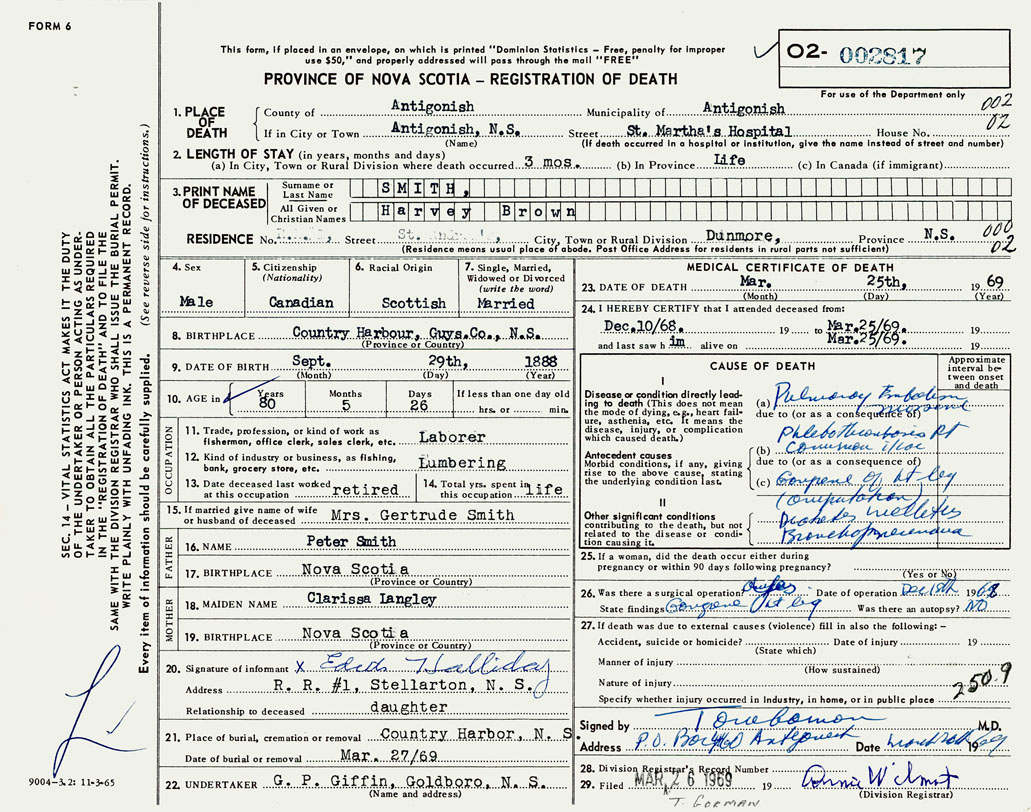 FORM 6
This form, if placed in an envelope, on which is printed "Dominion Statistics – Free, penalty for improper
use $50," and properly addressed will pass through the mail "FREE"
02- 002817
PROVINCE OF NOVA SCOTIA – REGISTRATION OF DEATH
For use of the Department only
1. PLACE OF DEATH County of Antigonish Municipality of Antigonish 002
If in City or Town Antigonish, N.S. Street St. Martha's Hospital House No. 02
(Name) (If death occurred in a hospital or institution, give the name instead of street and number)
2. LENGTH OF STAY (in years, months and days)
(a) In City, Town or Rural Division where death occurred 3 mos. (b) In Province Life (c) In Canada (if immigrant)
3. PRINT NAME OF DECEASED Surname or Last Name SMITH,
All Given or Christian Names Harvey Brown
RESIDENCE No. Street St. City, Town or Rural Division Dunmore, Province N.S. 000
(Residence means usual place of abode. Post Office Address for residents in rural parts not sufficient) 02
4. Sex Male
5. Citizenship (Nationality) Canadian
6. Racial Origin Scottish
7. Single, Married, Widowed or Divorced (write the word) Married
8. BIRTHPLACE Country Harbour, Guys.Co., N.S.
(Province or Country)
9. DATE OF BIRTH Sept. 29th, 1888
(Month) (Day) (Year)
10. AGE in Years 80 Months 5 Days 26 If less than one day old hrs. or min.
OCCUPATION
11. Trade, profession, or kind of work as fisherman, office clerk, sales clerk, etc. Laborer
12. Kind of industry or business, as fishing, bank, grocery store, etc. Lumbering
13. Date deceased last worked at this occupation retired
14. Total yrs. spent in this occupation life
15. If married give name of wife or husband of deceased Mrs. Gertrude Smith
FATHER
16. NAME Peter Smith
17. BIRTHPLACE Nova Scotia
(Province or Country)
MOTHER
18. MAIDEN NAME Clarissa Langley
19. BIRTHPLACE Nova Scotia
(Province or Country)
20. Signature of informant X Edith Halliday
Address R. R. #1, Stellarton, N. S.
Relationship to deceased daughter
21. Place of burial, cremation or removal Country Harbor, N. S.
Date of burial or removal Mar. 27/69
22. UNDERTAKER G. P. Giffin, Goldboro, N. S.
(Name and address)
MEDICAL CERTIFICATE OF DEATH
23. DATE OF DEATH Mar. 25th, 1969
(Month) (Day) (Year)
24. I HEREBY CERTIFY that I attended deceased from:
Dec.10/68. 19 to Mar.25/69. 19
and last saw h im alive on Mar.25/69. 19
CAUSE OF DEATH
Approximate interval between onset and death
I
Disease or condition directly leading to death (This does not mean the mode of dying, e.g., heart failure, asthenia, etc. It means the disease, injury, or complication which caused death.)
(a) Pulmonary Embolism massive
due to (or as a consequence of)
Antecedent causes
Morbid conditions, if any, giving rise to the above cause, stating the underlying condition last.
(b) Phlebothrombosis Rt Common iliac
due to (or as a consequence of)
(c) Gangrene of Rt leg
(amputation)
II
Other significant conditions contributing to the death, but not related to the disease or condition causing it.
Diabetes mellitus
Bronchopneumonia
25. If a woman, did the death occur either during pregnancy or within 90 days following pregnancy?
(Yes or No)
26. Was there a surgical operation? Date of operation Dec 18th 1968
State findings Gangrene Rt leg Was there an autopsy? NO
27. If death was due to external causes (violence) fill in also the following: –
Accident, suicide or homicide? Date of injury 19
(State which)
Manner of injury
(How sustained)
Nature of injury 250.9
Specify whether injury occurred in industry, in home, or in public place
Signed by M.D.
Address P.O. Box Antigonish Date 1969
28. Division Registrar's Record Number
29. Filed MAR 26 1969 19
(Division Registrar)
T. GORMAN
SEC. 14 – VITAL STATISTICS ACT MAKES IT THE DUTY
OF THE UNDERTAKER OR PERSON ACTING AS UNDER-
TAKER TO OBTAIN ALL THE PARTICULARS REQUIRED
IN THE "REGISTRATION OF DEATH" AND TO FILE THE
SAME WITH THE DIVISION REGISTRAR WHO SHALL ISSUE THE BURIAL PERMIT.
WRITE PLAINLY WITH UNFADING INK. THIS IS A PERMANENT RECORD.
Every item of information should be carefully supplied. (See reverse side for instructions.)
9004-3.2: 11-3-65